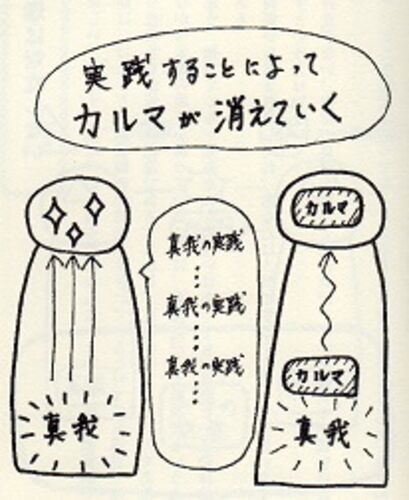 実践することによって
カルマが消えていく
真我の実践
真我の実践
真我の実践
真我
カルマ
カルマ
真我